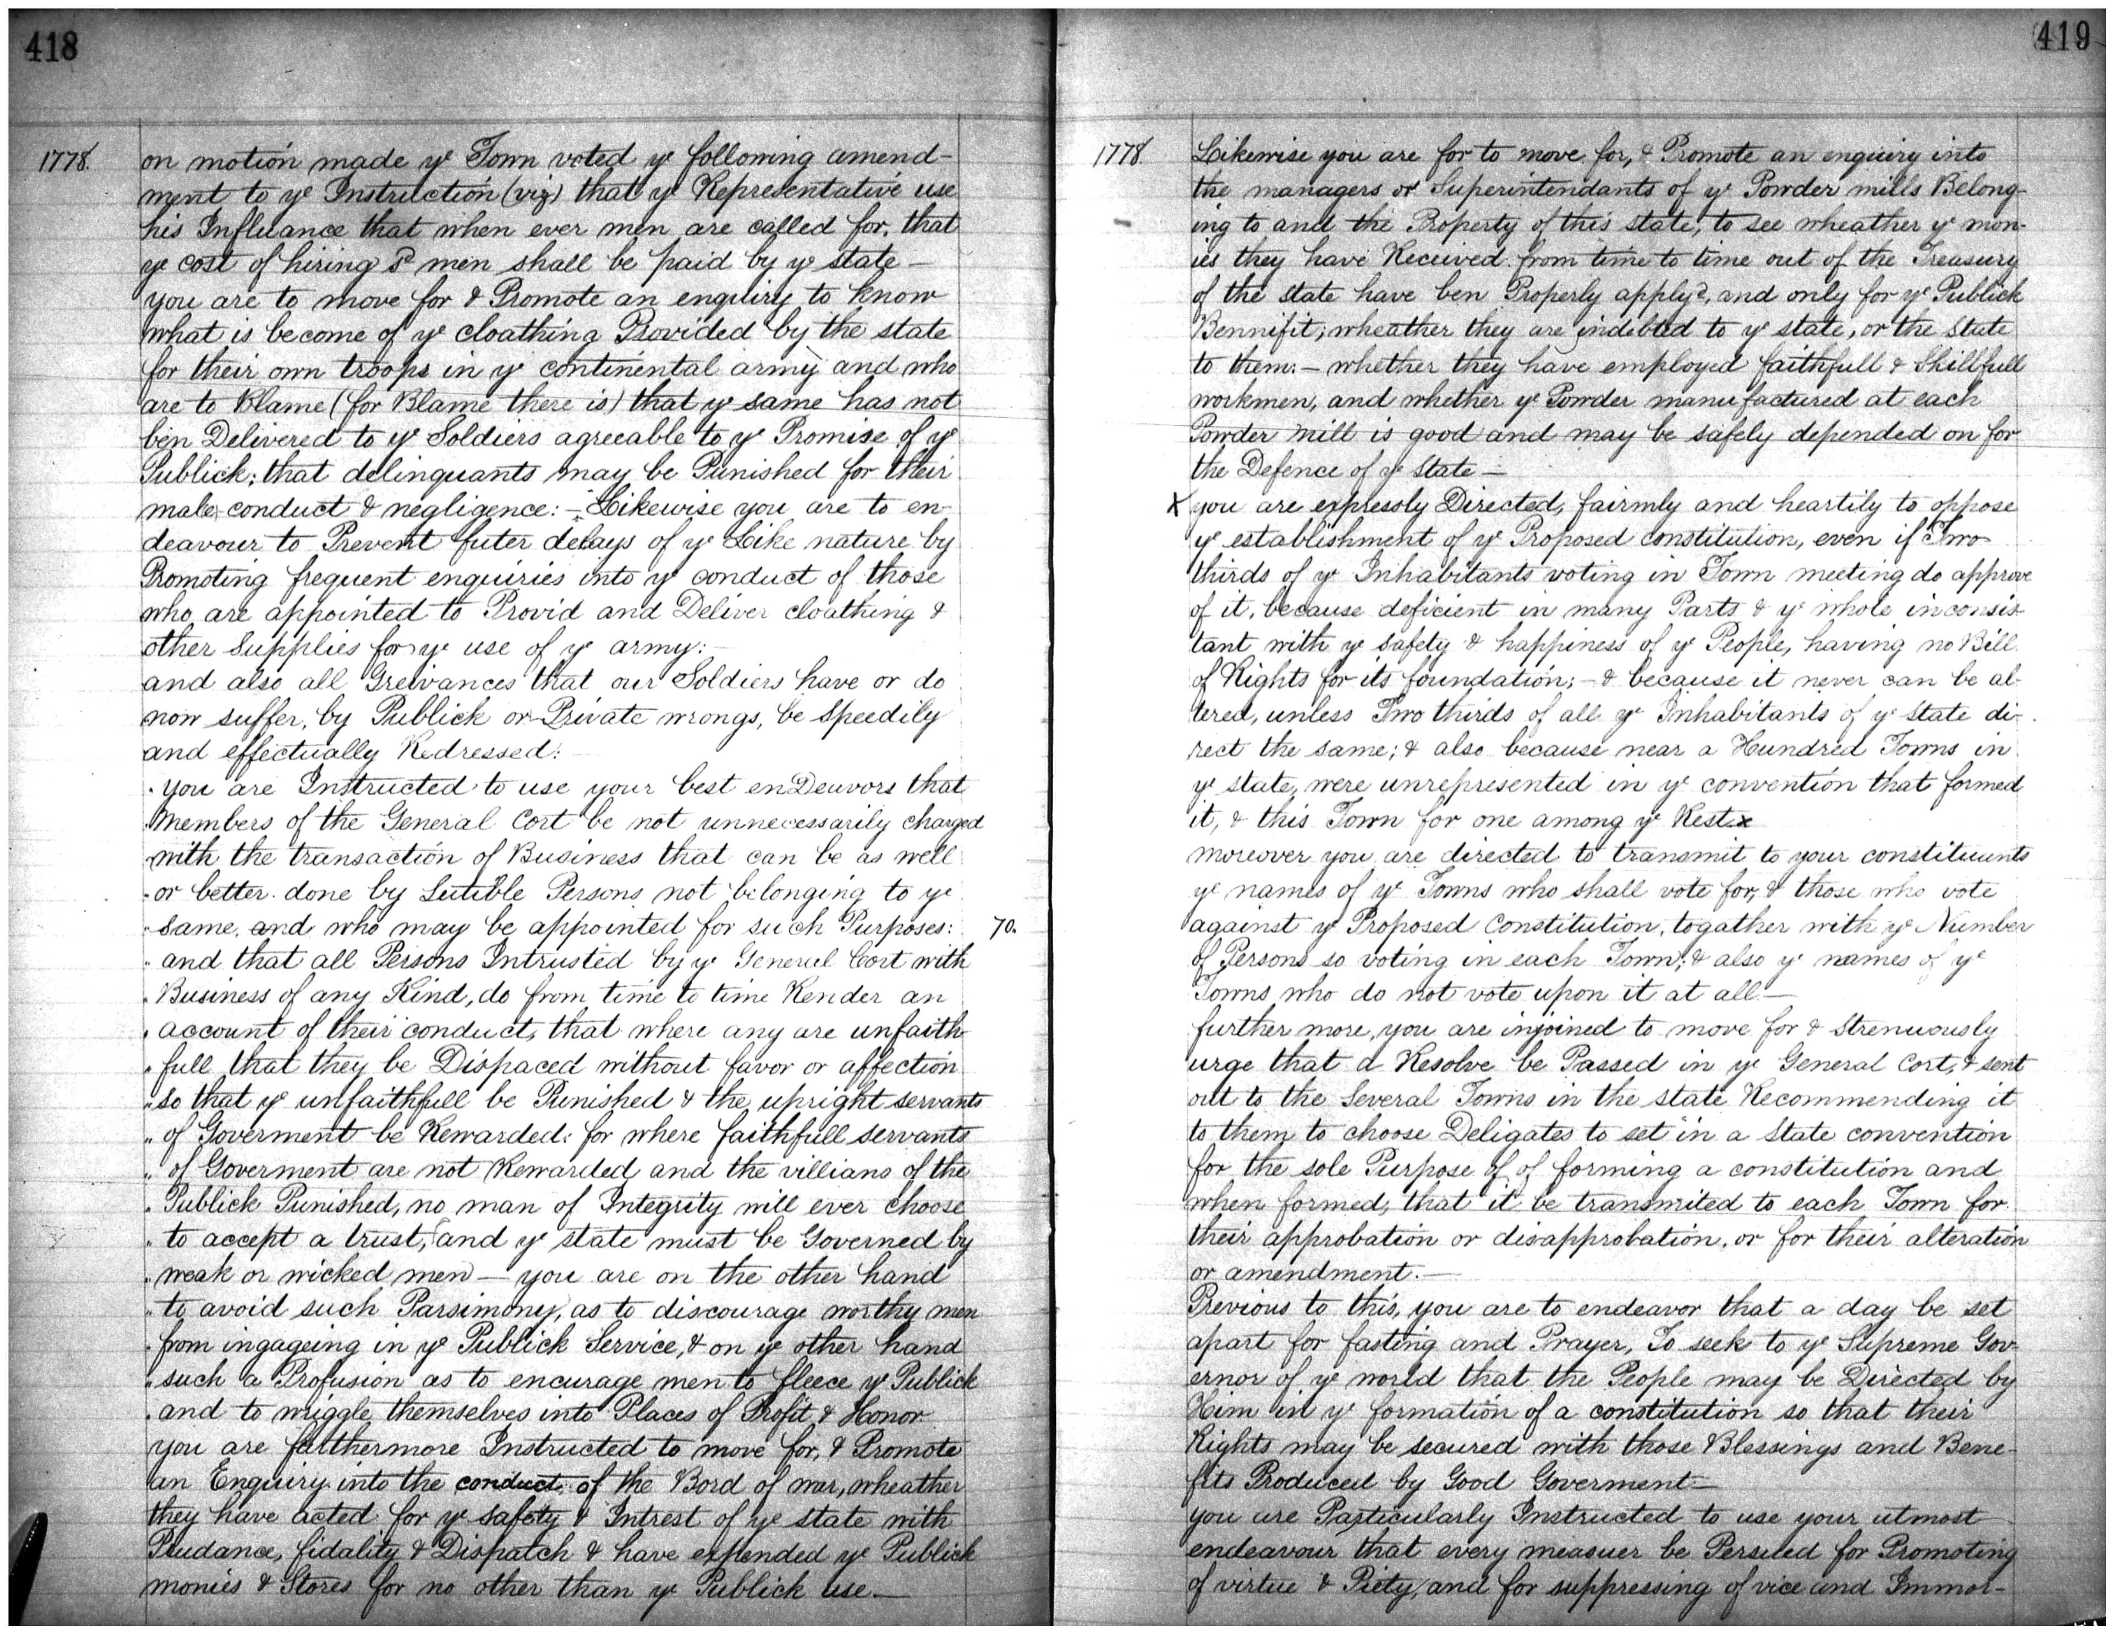 418
1778.
on motion made ye Town voted ye following amend-
ment to ye Instruction (viz) that ye Representative use
his Influance that when ever men are called for, that
ye cost of hiring sd men shall be paid by ye state —
you are to move for & Promote an enquiry to know
what is become of ye cloathing Provided by the state
for their own troops in ye continental army and who
are to Blame (for Blame there is) that ye same has not
ben Delivered to ye Soldiers agreeable to ye Promise of ye
Publick; that delinquants may be Punished for their
male conduct & negligence: — Likewise you are to en-
deavour to Prevent futer delays of ye Like nature by
Promoting frequent enquiries into ye conduct of those
who are appointed to Provid and Deliver cloathing &
other Supplies for ye use of ye army: —
and also all Greivances that our Soldiers have or do
now suffer, by Publick or Private wrongs, be Speedily
and effectually Redressed: —
you are Instructed to use your best enDeuvors that
Members of the General Cort be not unnecessarily charged
with the transaction of Business that can be as well
or better done by Sutible Persons not belonging to ye
same, and who may be appointed for such Purposes: 70.
and that all Persons Intrusted by ye General Cort with
Business of any Kind, do from time to time Render an
account of their conduct, that where any are unfaith-
full that they be Dispaced without favor or affection
so that ye unfaithfull be Punished & the upright servants
of Goverment be Rewarded: for where faithfull servants
of Goverment are not Rewarded and the villians of the
Publick Punished, no man of Integrity will ever choose
to accept a trust, and ye state must be Governed by
weak or wicked men — you are on the other hand
to avoid such Parsimony, as to discourage worthy men
from ingageing in ye Publick Service, & on ye other hand
such a Profusion as to encurage men to fleece ye Publick
and to wriggle themselves into Places of Profit & Honor
you are furthermore Instructed to move for, & Promote
an Enquiry into the conduct of the Bord of war, wheather
they have acted for ye safety & Intrest of ye state with
Prudance, fidality & Dispatch & have expended ye Publick
monies & Stores for no other than ye Publick use —
419
1778
Likewise you are for to move for, & Promote an enquiry into
the managers or Superintendants of ye Powder mills Belong-
ing to and the Property of this state, to see wheather ye mon-
ies they have Received from time to time out of the Treasury
of the state have ben Properly applyd, and only for ye Publick
Bennifit; wheather they are indebted to ye state, or the state
to them: — whether they have employed faithfull & Skillfull
workmen, and whether ye Powder manufactured at each
Powder mill is good and may be safely depended on for
the Defence of ye state —
x you are expressly Directed, fairmly and heartily to oppose
ye establishment of ye Proposed constitution, even if Two
thirds of ye Inhabitants voting in Town meeting do approve
of it, because deficient in many Parts & ye whole inconsis-
tant with ye safety & happiness of ye People, having no Bill
of Rights for its foundation; — & because it never can be al-
tered, unless Two thirds of all ye Inhabitants of ye state di-
rect the same; & also because near a Hundred Towns in
ye state, were unrepresented in ye convention that formed
it, & this Town for one among ye Rest. x
moreover you are directed to transmit to your constituents
ye names of ye Towns who shall vote for, & those who vote
against ye Proposed Constitution, togather with ye Number
of Persons so voting in each Town; & also ye names of ye
Towns who do not vote upon it at all —
further more, you are injoined to move for & strenuously
urge that a Resolve be Passed in ye General Cort, & sent
out to the Several Towns in the state Recommending it
to them to choose Deligates to set in a State convention
for the sole Purpose of of forming a constitution and
when formed, that it be transmited to each Town for
their approbation or disapprobation, or for their alteration
or amendment. —
Previous to this, you are to endeavor that a day be set
apart for fasting and Prayer, To seek to ye Supreme Gov-
ernor of ye world that the People may be Directed by
Him in ye formation of a constitution so that their
Rights may be secured with those Blessings and Bene-
fits Produced by Good Goverment —
you are Particularly Instructed to use your utmost
endeavour that every measuer be Persued for Promoting
of virtue & Piety, and for suppressing of vice and Immor-